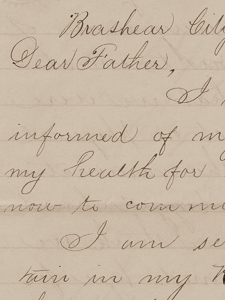 Brashear City
Dear Father,
I
informed of my
my health for
now to comm
I am se
tain in my